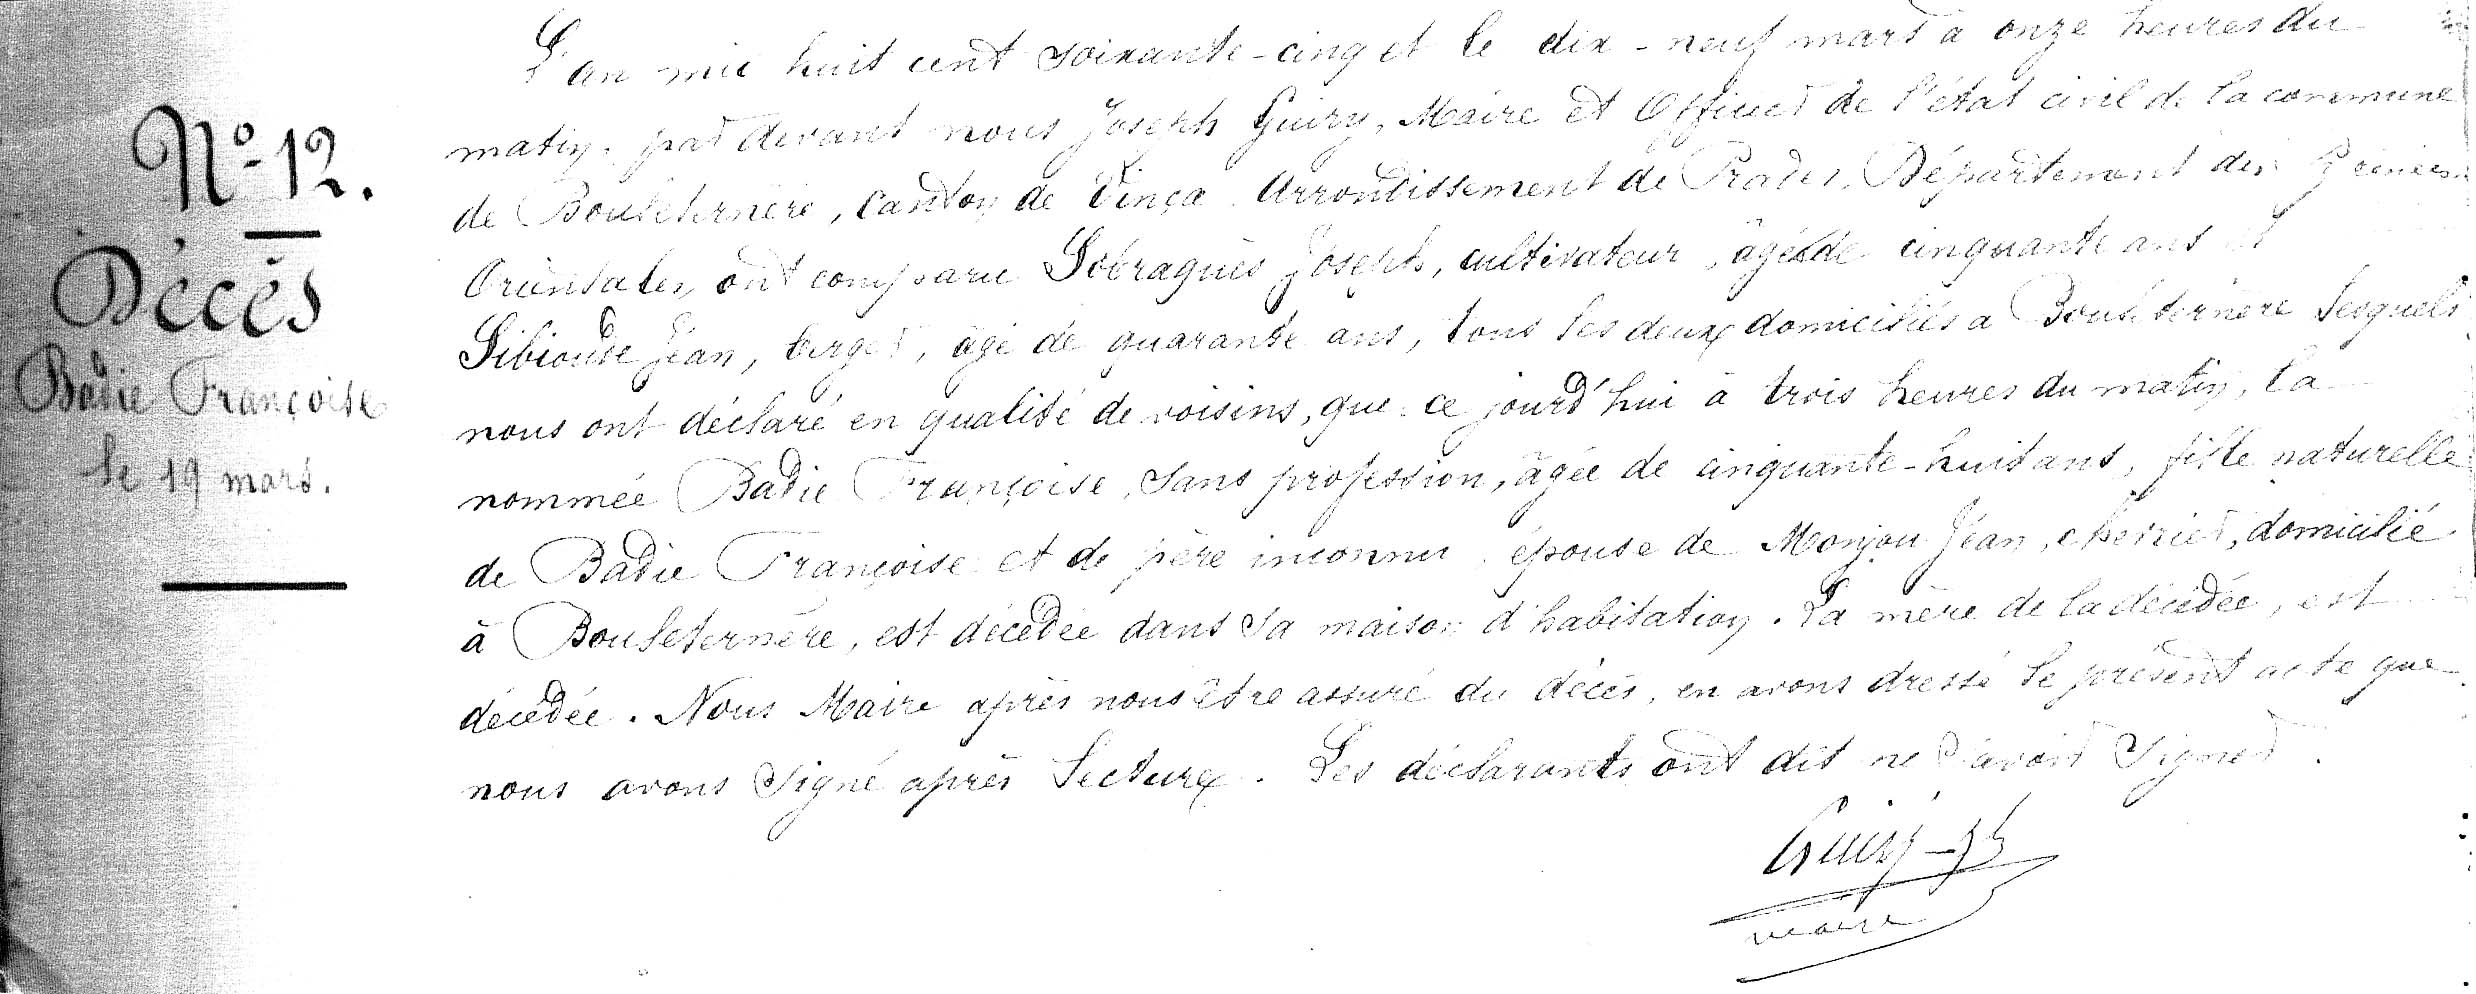 N°-12.
Décès
Badie Françoise
le 19 mars.
L'an mil huit cent soixante-cinq et le dix-neuf mars à onze heures du
matin, par devant nous Joseph Guiry, Maire et Officier de l'état civil de la commune
de Bouleternère, canton de Vinça Arrondissement de Prades, Département des Pyrénées
Orientales, ont comparu Sobraquès Joseph, cultivateur, âgé de cinquante ans et
Sibioude Jean, berger, âgé de quarante ans, tous les deux domiciliés à Bouleternère lesquels
nous ont déclaré en qualité de voisins, que ce jourd'hui à trois heures du matin, la
nommée Badie Françoise, sans profession, âgée de cinquante-huit ans, fille naturelle
de Badie Françoise et de père inconnu, épouse de Monjou Jean, domicilié
à Bouleternère, est décédée dans sa maison d'habitation. La mère de la décédée, est
décédée. Nous Maire après nous être assuré du décès, en avons dressé le présent acte que
nous avons signé après lecture. Les déclarants ont dit ne savoir signer.
maire